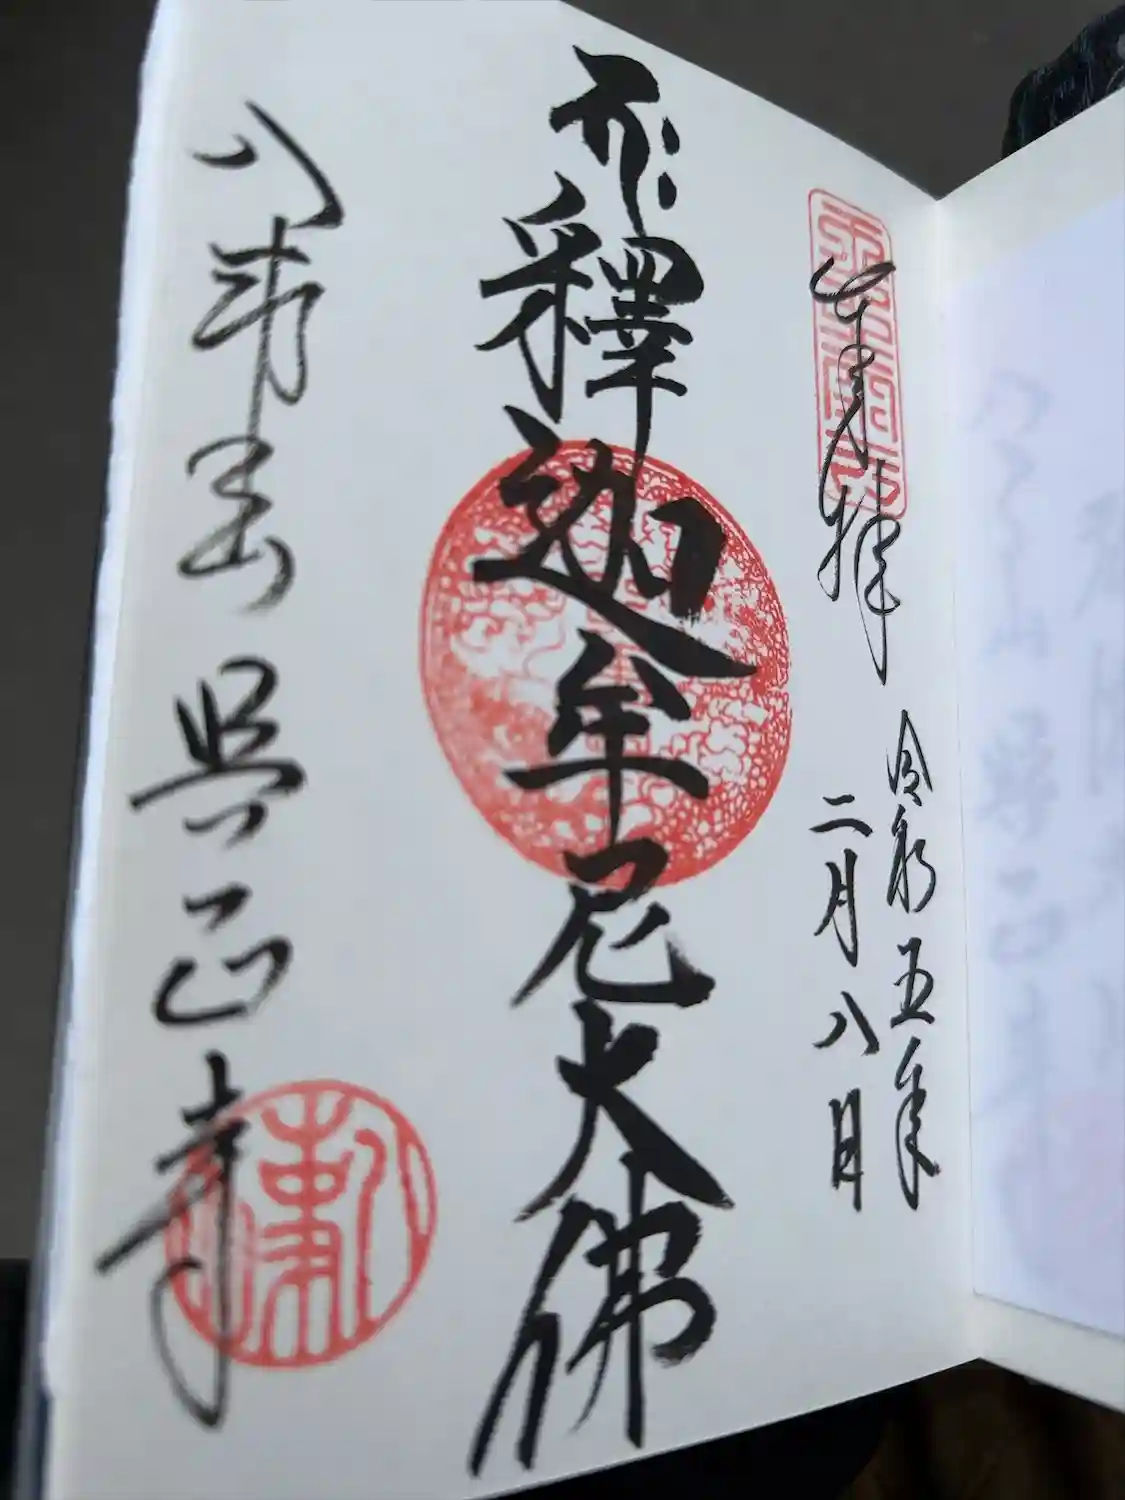 奉拝
令和五年
二月八日
釋迦牟尼大佛
八事山 興正寺